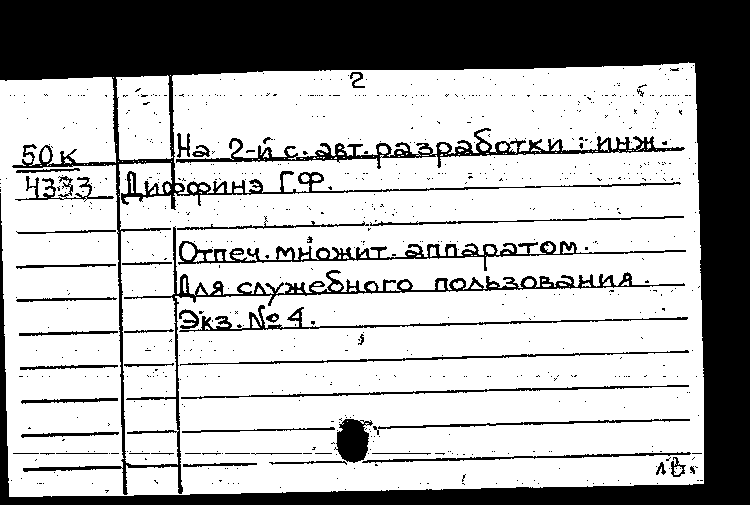 2
50к На 2-й с. авт. разработки : инж.
4333 Диффинэ Г.Ф.
Отпеч. множит. аппаратом.
Для служебного пользования.
Экз. № 4.